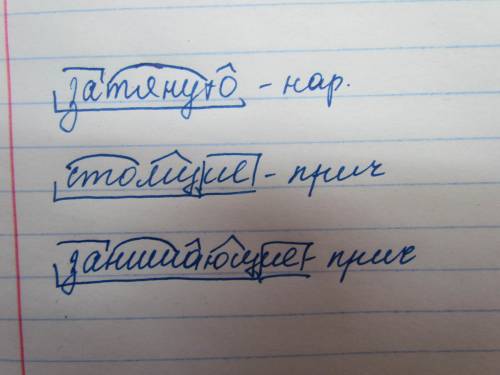 затянуто - нар.
стоящие - прич
занимающие - прич